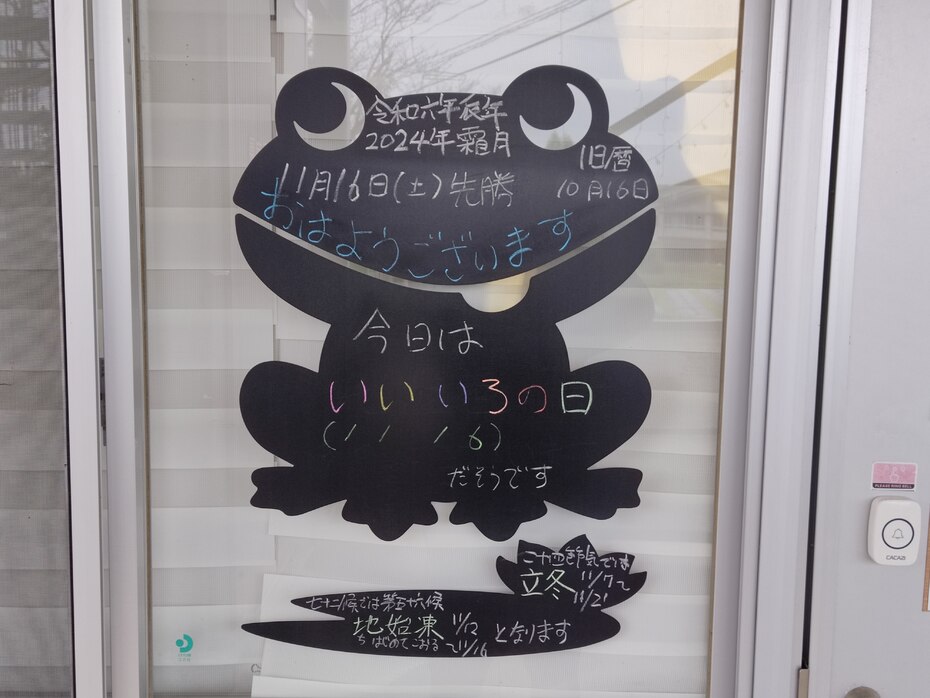 令和六年辰年
2024年霜月
旧暦
11月16日(土)先勝
10月16日
おはようございます
今日は
いいいろの日
(11 16)
だそうです
二十四節気では
立冬 11/7〜
11/21
七十二候では第五十六候
地始凍 11/12
〜11/16
ちはじめてこおる
となります
PLEASE RING BELL
CACAZI